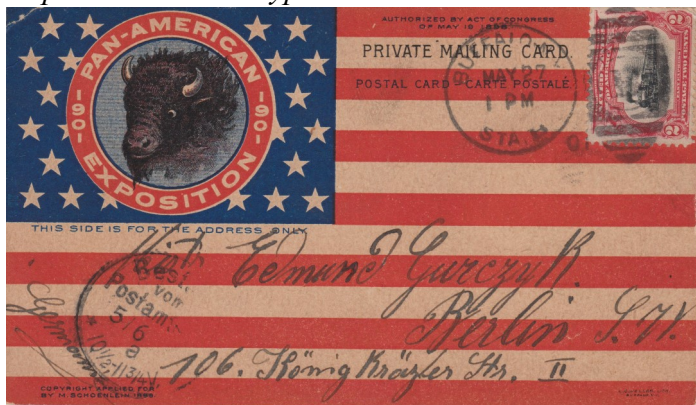 PAN-AMERICAN
1901 1901
EXPOSITION
AUTHORIZED BY ACT OF CONGRESS
OF MAY 19, 1898
PRIVATE MAILING CARD.
POSTAL CARD - CARTE POSTALE
BUFFALO
MAY 27
1 PM
STA.
2 2
THIS SIDE IS FOR THE ADDRESS ONLY
Edmund Gurczyk
Berlin S.W.
106. Königkräzler Str. II
Germany
Best.
vom
Postam
5/6
COPYRIGHT APPLIED FOR
BY M. SCHOENLEIN 1899